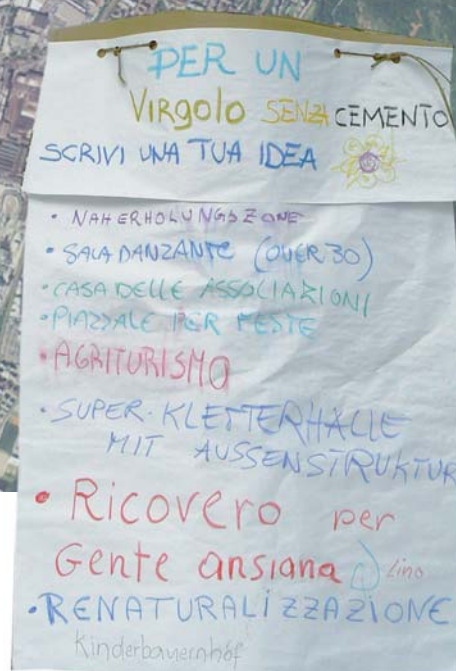 PER UN
VIRgolo SENZA CEMENTO
SCRIVI UNA TUA IDEA
• NAHERHOLUNGSZONE
• SALA DANZANTE (OVER 30)
• CASA DELLE ASSOCIAZIONI
• PIAZZALE PER FESTE
• AGRITURISMO
• SUPER-KLETTERHALLE
MIT AUSSENSTRUKTUR
• Ricovero per
Gente ansiana Lino
• RENATURALIZZAZIONE
Kinderbauernhof